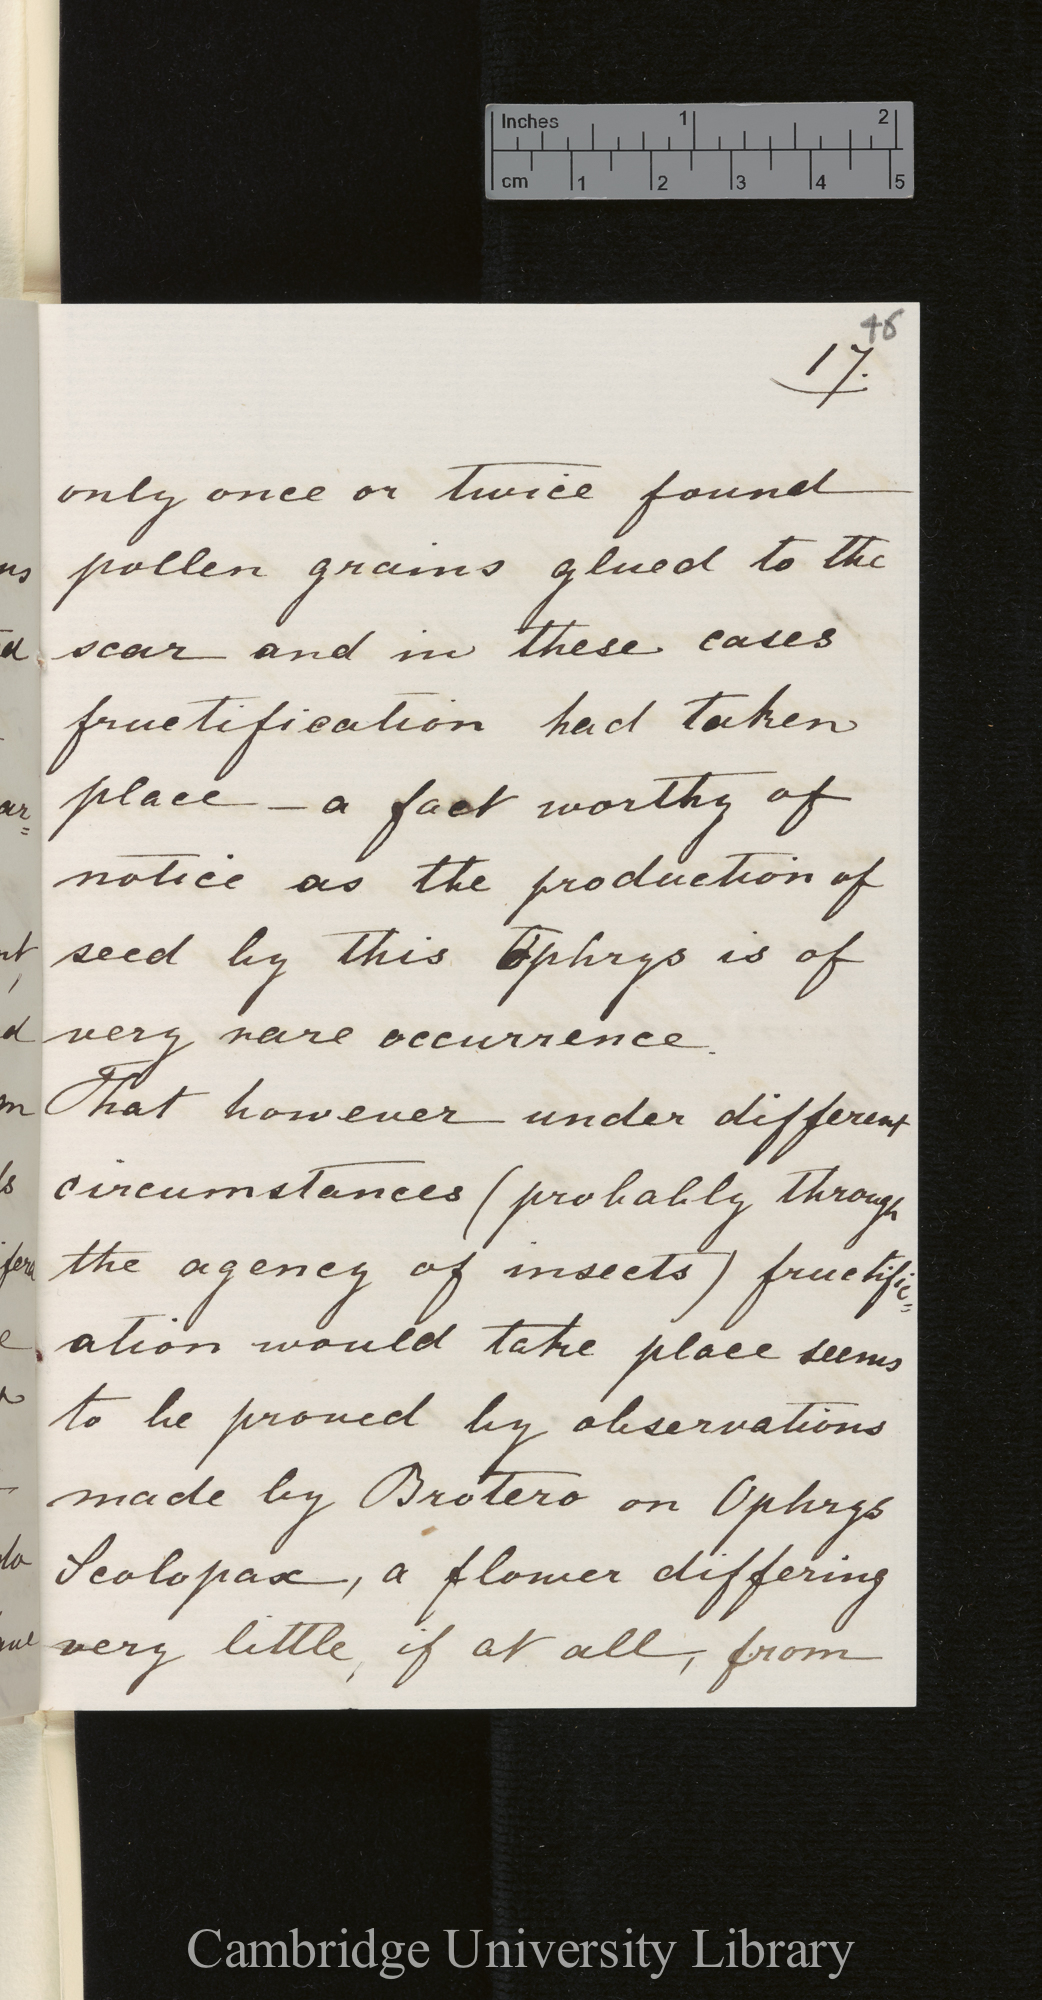 Inches 1 2
cm 1 2 3 4 5
46
17.
only once or twice found
pollen grains glued to the
scar and in these cases
fructification had taken
place – a fact worthy of
notice as the production of
seed by this Ophrys is of
very rare occurrence.
That however under different
circumstances (probably through
the agency of insects) fructific=
ation would take place seems
to be proved by observations
made by Brotero on Ophrys
Scolopax, a flower differing
very little, if at all, from
Cambridge University Library